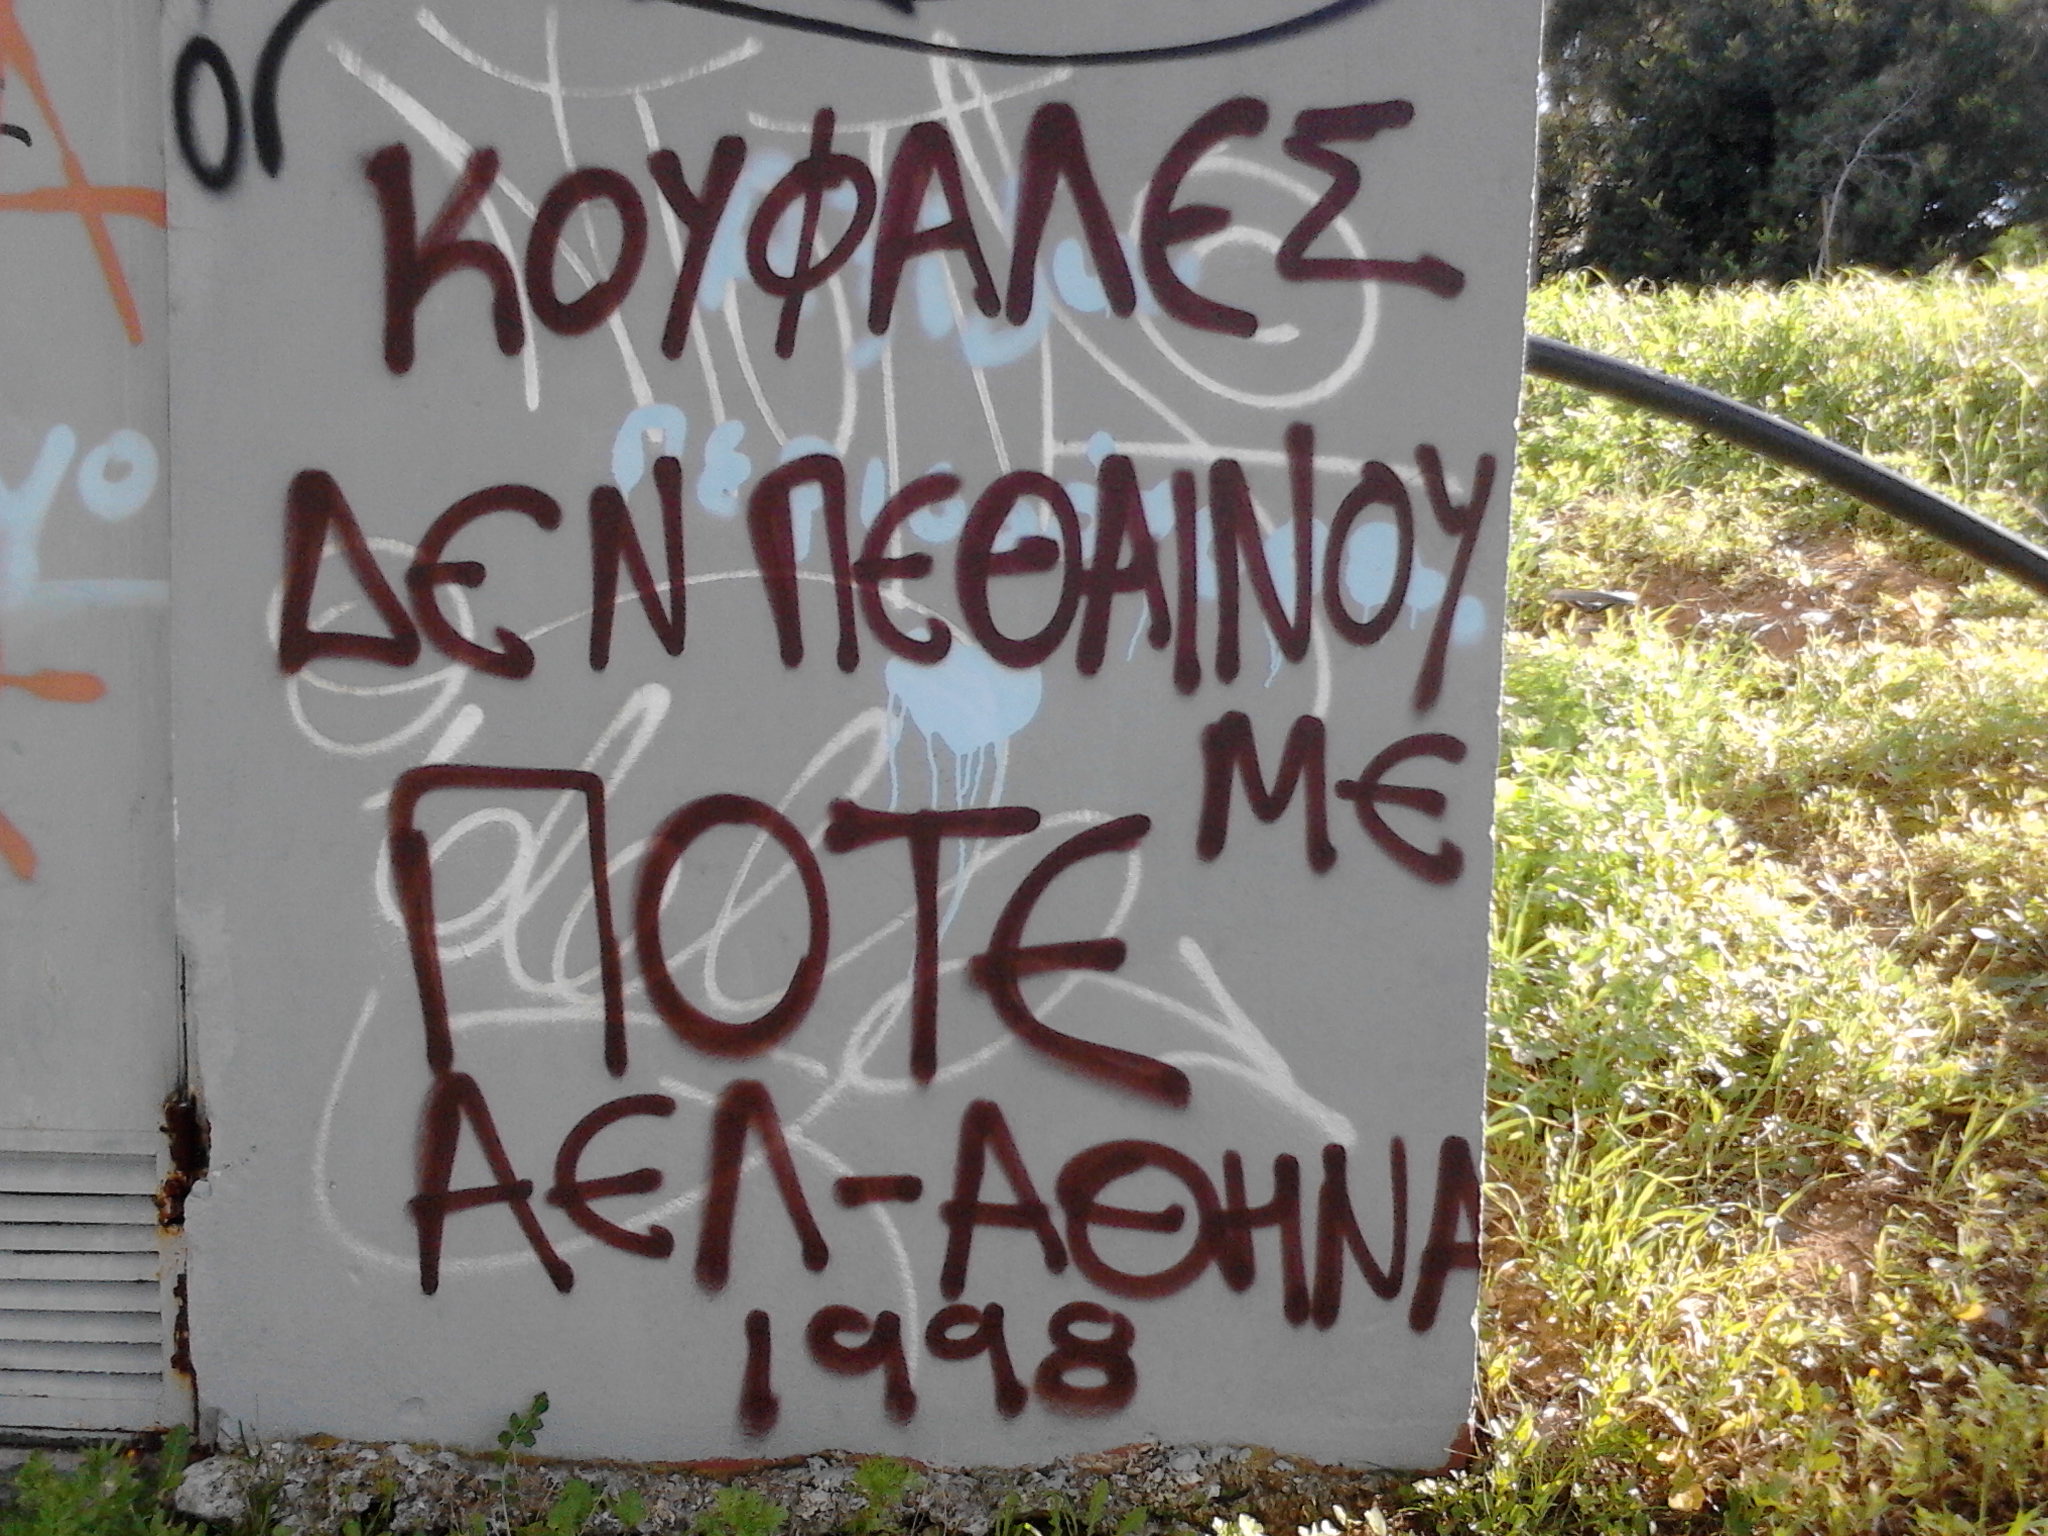 ΚΟΥΦΑΛΕΣ
ΔΕΝ ΠΕΘΑΙΝΟΥ
ΜΕ
ΠΟΤΕ
ΑΕΛ-ΑΘΗΝΑ
1998